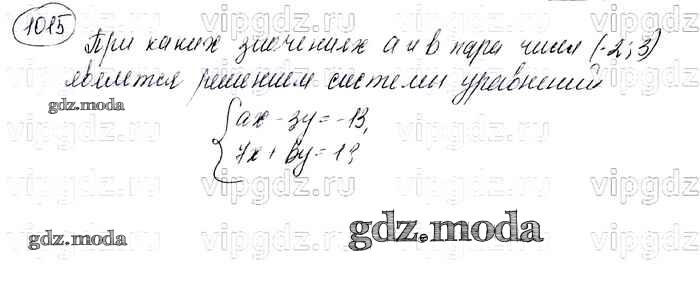 1015
При каких значениях a и b пара чисел (-2; 3)
является решением системы уравнений
{ax - 3y = -13,
7x + by = 1?
gdz.moda
gdz.moda
gdz.moda
vipgdz vipgdz vipgdz vipgdz